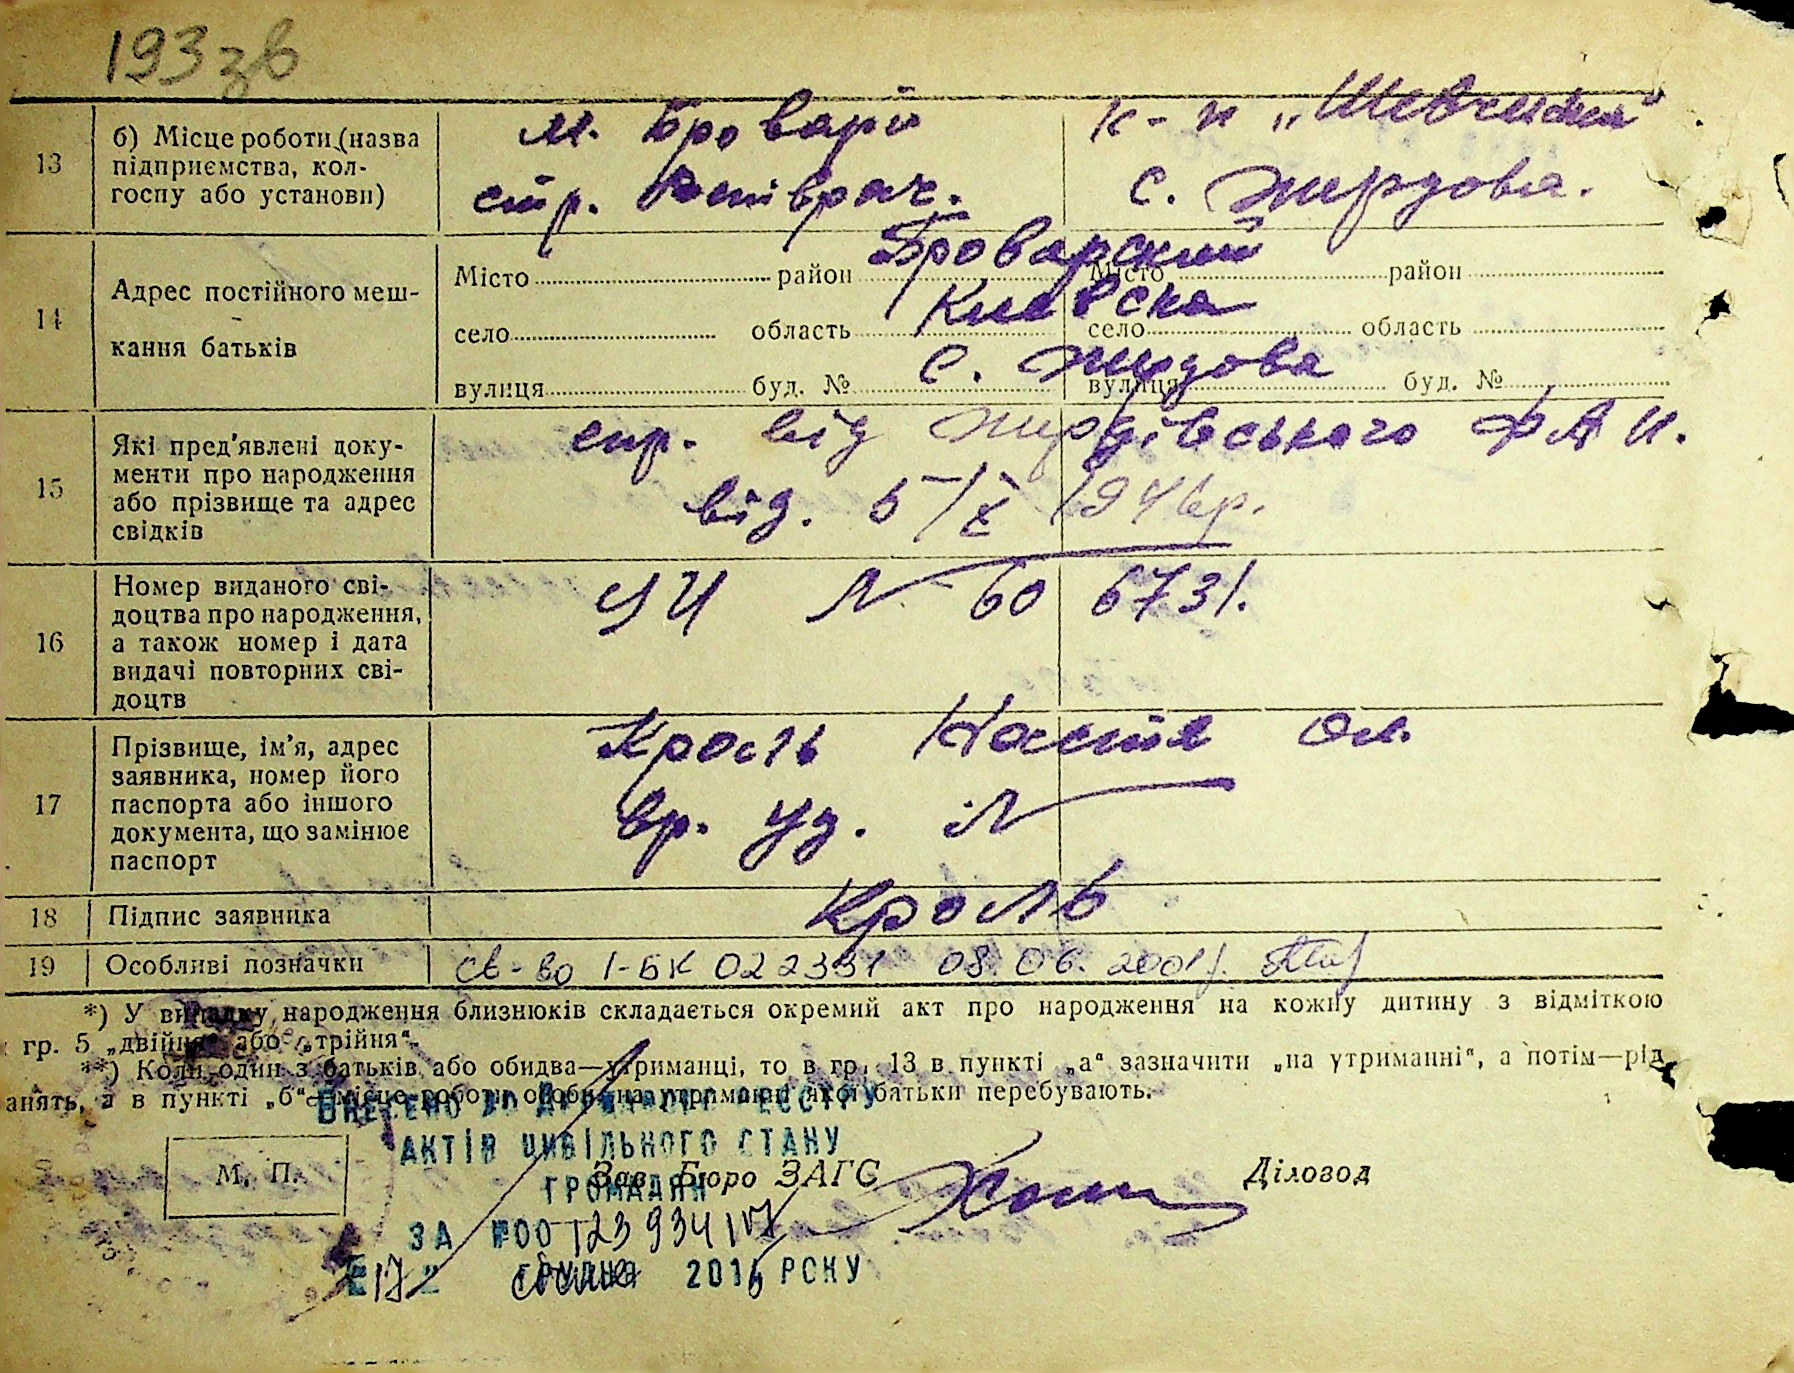 193 зв
13 б) Місце роботи (назва підприємства, колгоспу або установи)
м. Бровари
стр.
к-п „Шевченка"
с. Жердова.
14 Адрес постійного мешкання батьків
Місто район Броварский Місто район
село область Киевска село область
вулиця буд. № с. Жердова вулиця буд. №
15 Які пред'явлені документи про народження або прізвище та адрес свідків
спр. від Жердівського ФАП.
від. 5/X 194 р.
16 Номер виданого свідоцтва про народження, а також номер і дата видачі повторних свідоцтв
УЧ № 606731.
17 Прізвище, ім'я, адрес заявника, номер його паспорта або іншого документа, що замінює паспорт
Кроль Настя Ол.
вр. уд. №
18 Підпис заявника Кроль
19 Особливі позначки св-во І-БК 022331 08.06.2001р.
*) У випадку народження близнюків складається окремий акт про народження на кожну дитину з відміткою
гр. 5 „двійня" або „трійня".
**) Коли один з батьків або обидва—утриманці, то в гр. 13 в пункті „а" зазначити „на утриманні", а потім—рід
анять, а в пункті „б"—місце роботи особи, на утриманні якої батьки перебувають.
ВНЕСЕНО ДО ДЕРЖАВНОГО РЕЄСТРУ
АКТІВ ЦИВІЛЬНОГО СТАНУ
М. П.
Зав. Бюро ЗАГС
Діловод
ГРОМАДЯН
ЗА №00123934107
"17" 2016 РОКУ